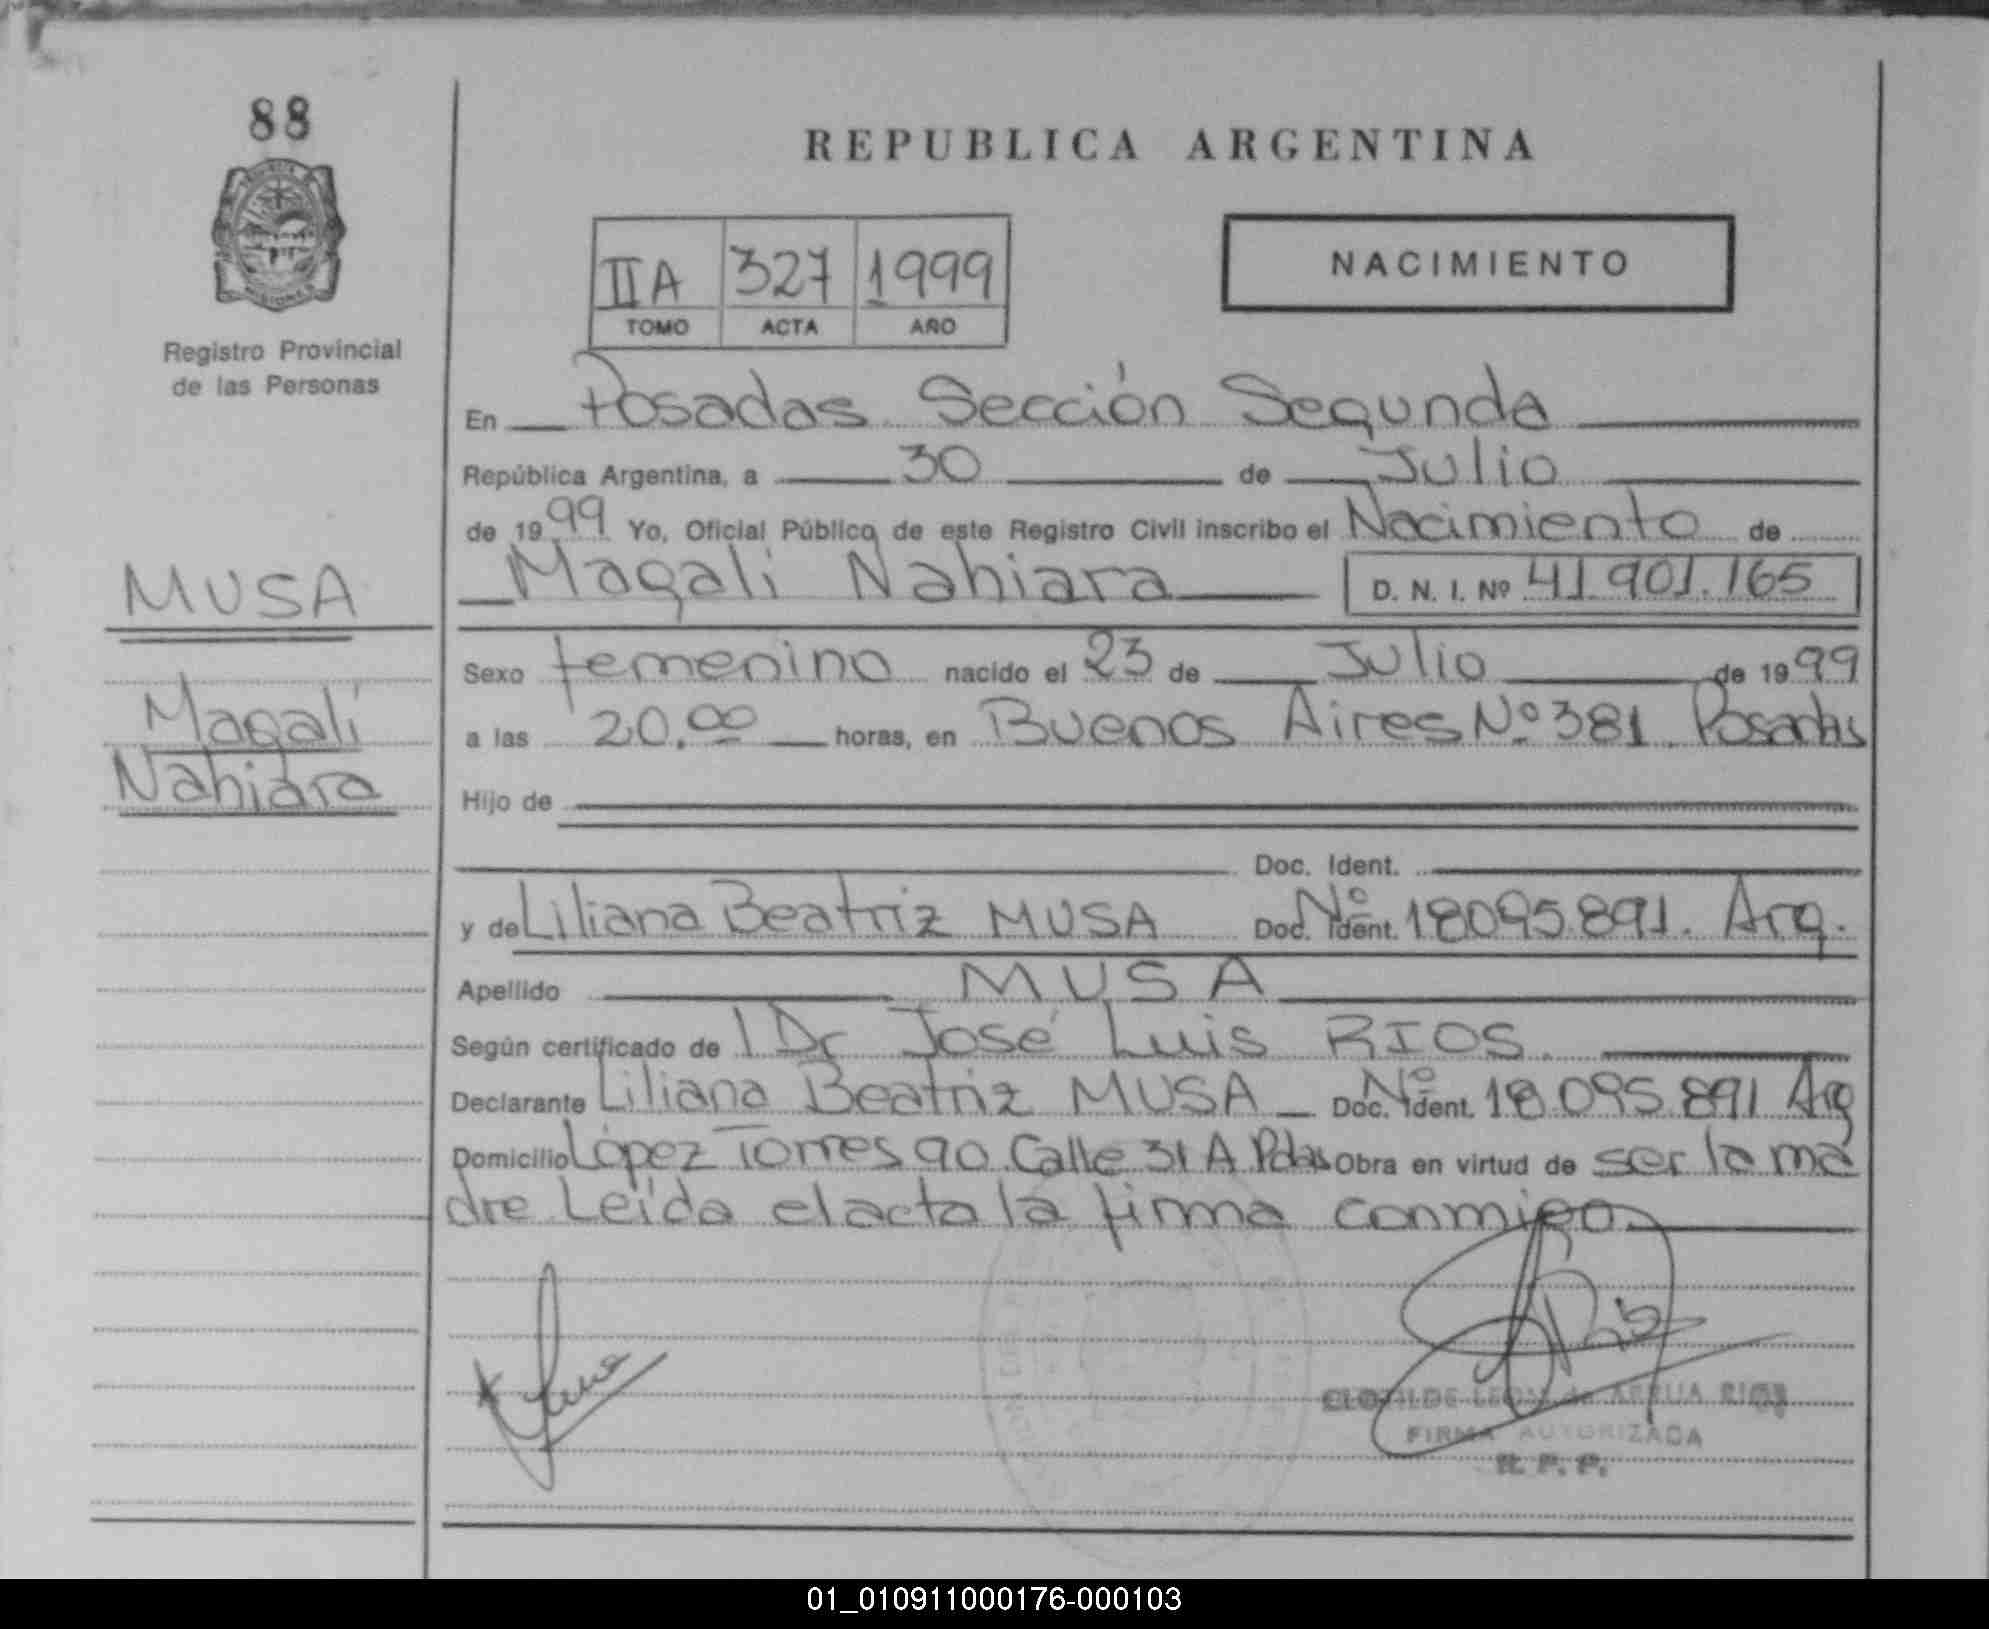 88
REPUBLICA ARGENTINA
MISIONES
Registro Provincial
de las Personas
IIA 327 1999
TOMO ACTA AÑO
NACIMIENTO
En Posadas Sección Segunda
República Argentina, a 30 de Julio
de 1999 Yo, Oficial Público de este Registro Civil inscribo el Nacimiento de
Magali Nahiara D. N. I. Nº 41.901.165
MUSA
Magali
Nahiara
Sexo femenino nacido el 23 de Julio de 1999
a las 20.00 horas, en Buenos Aires Nº 381 Posadas
Hijo de
Doc. Ident.
y de Liliana Beatriz MUSA Doc. Ident. Nº 18095.891. Arg.
Apellido MUSA
Según certificado de l Dr José Luis RIOS.
Declarante Liliana Beatriz MUSA Doc. Ident. Nº 18.095.891 Arg
Domicilio López Torres 90 Calle 31 A Pdas Obra en virtud de ser la ma
dre Leída el acta la firma conmigo
CLOTILDE LEON de ARRUA RIOS
FIRMA AUTORIZADA
R. P. P.
01_010911000176-000103